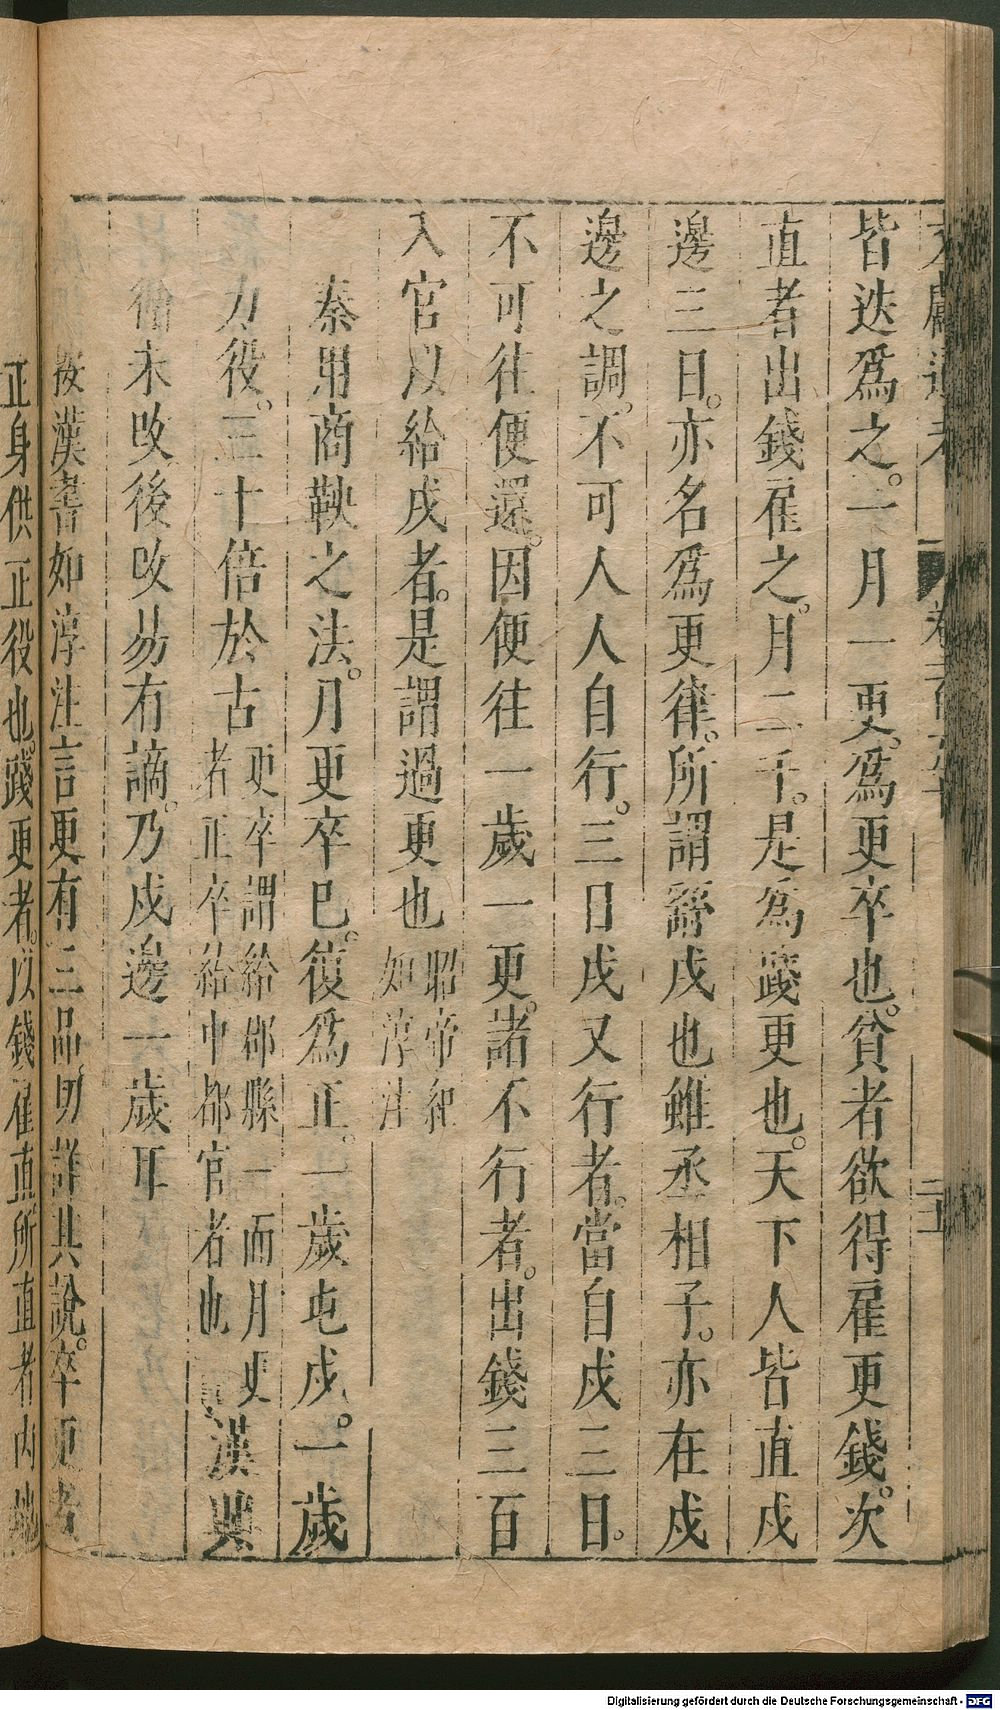 皆迭爲之。一月一更。爲更卒也。貧者欲得雇更錢。次
直者出錢雇之。月二千。是爲踐更也。天下人皆直戍
邊三日。亦名爲更律。所謂繇戍也雖丞相子。亦在戍
邊之調。不可人人自行。三日戍又行者。當自戍三日。
不可往便還。因便往一歲一更。諸不行者。出錢三百
入官以給戍者。是謂過更也昭帝紀如淳注
秦用商鞅之法。月更卒巳。復爲正。一歲屯戍。一歲
力役。三十倍於古更卒謂給郡縣一而月更者正卒給中都官者也漢興
循未改後改易有謫。乃戍邊一歲耳
按漢書如淳注言更有三品。明詳其說。卒更者
正身供正役也。踐更者。以錢雇直所直者內地
Digitalisierung gefördert durch die Deutsche Forschungsgemeinschaft - DFG